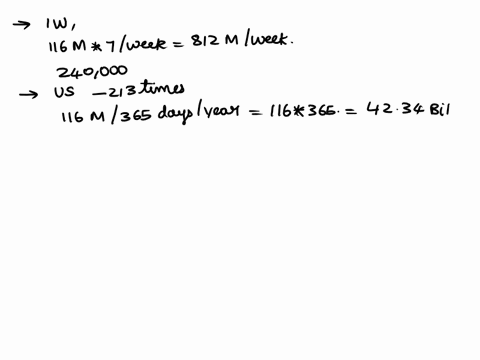 → 1W,
116 M * 7/week = 812 M/week.
240,000
→ US - 213 times
116 M/365 days/year = 116*365. = 42.34 Bil